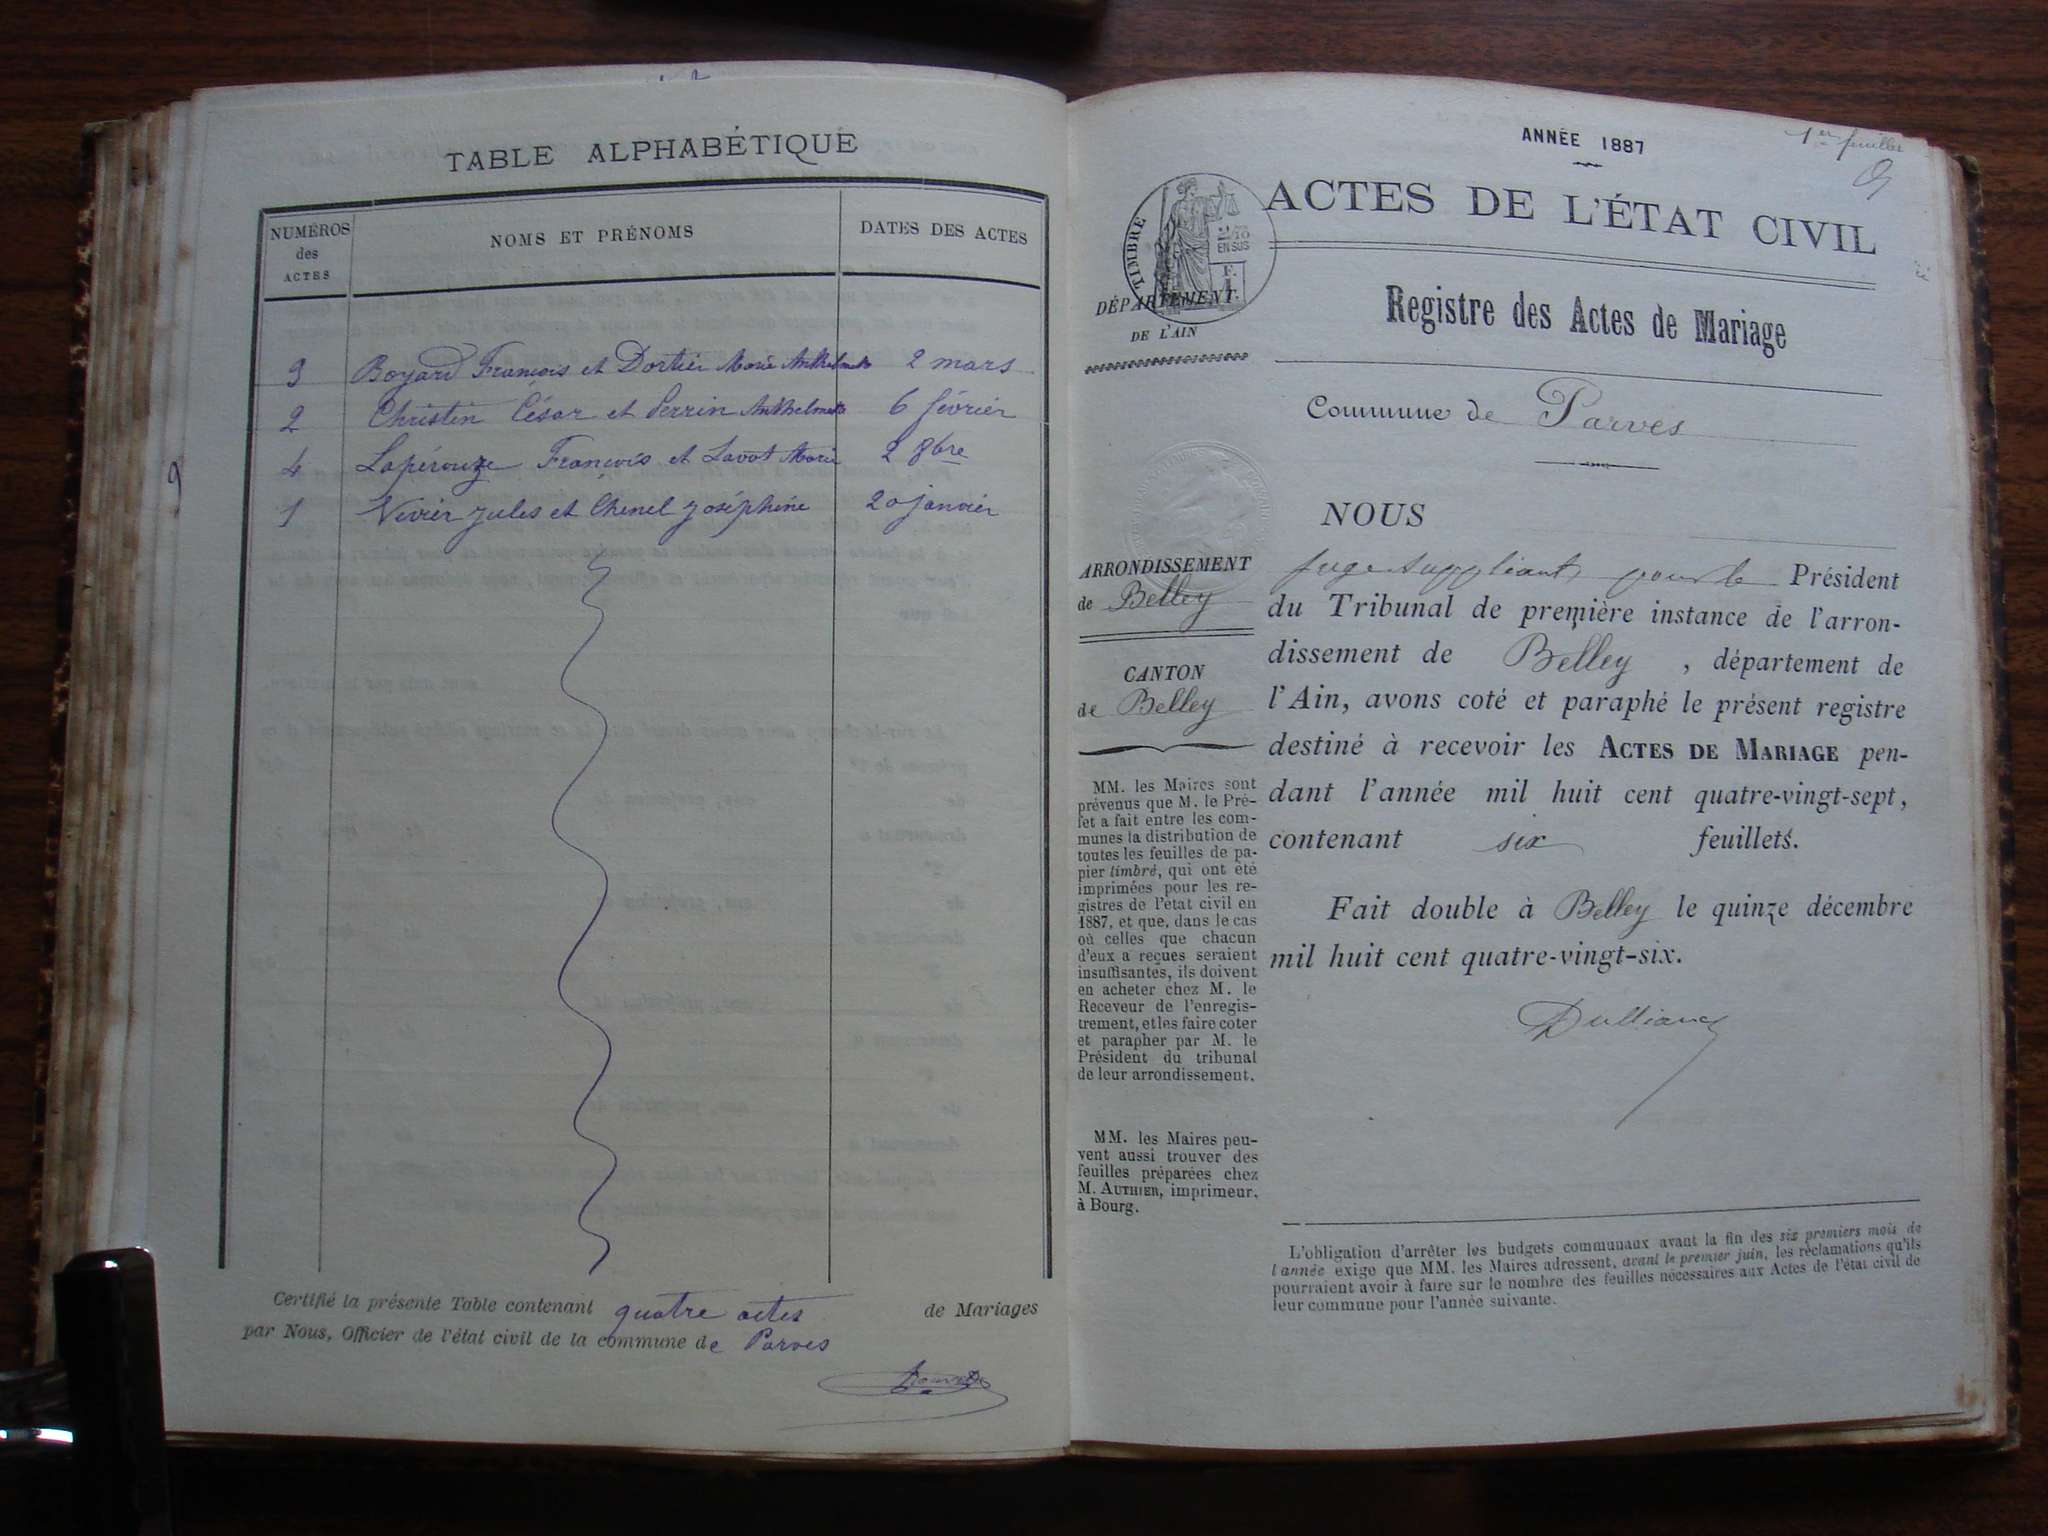 TABLE ALPHABÉTIQUE
NUMÉROS
des
ACTES
NOMS ET PRÉNOMS
DATES DES ACTES
3 Boyard François et Dortier Marie Anthelmette 2 mars
2 Christin César et Perrin Anthelmette 6 février
4 Lapérouze François et Lavot Marie 2 8bre
1 Vivier Jules et Chenel Joséphine 20 janvier
9
Certifié la présente Table contenant quatre actes de Mariages
par Nous, Officier de l'état civil de la commune de Parves
1er feuillet
ANNÉE 1887
ACTES DE L'ÉTAT CIVIL
TIMBRE
2/10
EN SUS
F.
DÉPARTEMENT
DE L'AIN
Registre des Actes de Mariage
Commune de Parves
NOUS
juge suppléant, pour le Président
du Tribunal de première instance de l'arron-
dissement de Belley, département de
l'Ain, avons coté et paraphé le présent registre
destiné à recevoir les ACTES DE MARIAGE pen-
dant l'année mil huit cent quatre-vingt-sept,
contenant six feuillets.
Fait double à Belley le quinze décembre
mil huit cent quatre-vingt-six.
ARRONDISSEMENT
de Belley
CANTON
de Belley
MM. les Maires sont
prévenus que M. le Pré-
fet a fait entre les com-
munes la distribution de
toutes les feuilles de pa-
pier timbré, qui ont été
imprimées pour les re-
gistres de l'état civil en
1887, et que, dans le cas
où celles que chacun
d'eux a reçues seraient
insuffisantes, ils doivent
en acheter chez M. le
Receveur de l'enregis-
trement, et les faire coter
et parapher par M. le
Président du tribunal
de leur arrondissement.
MM. les Maires peu-
vent aussi trouver des
feuilles préparées chez
M. AUTHIER, imprimeur,
à Bourg.
L'obligation d'arrêter les budgets communaux avant la fin des six premiers mois de
l'année exige que MM. les Maires adressent, avant le premier juin, les réclamations qu'ils
pourraient avoir à faire sur le nombre des feuilles nécessaires aux Actes de l'état civil de
leur commune pour l'année suivante.